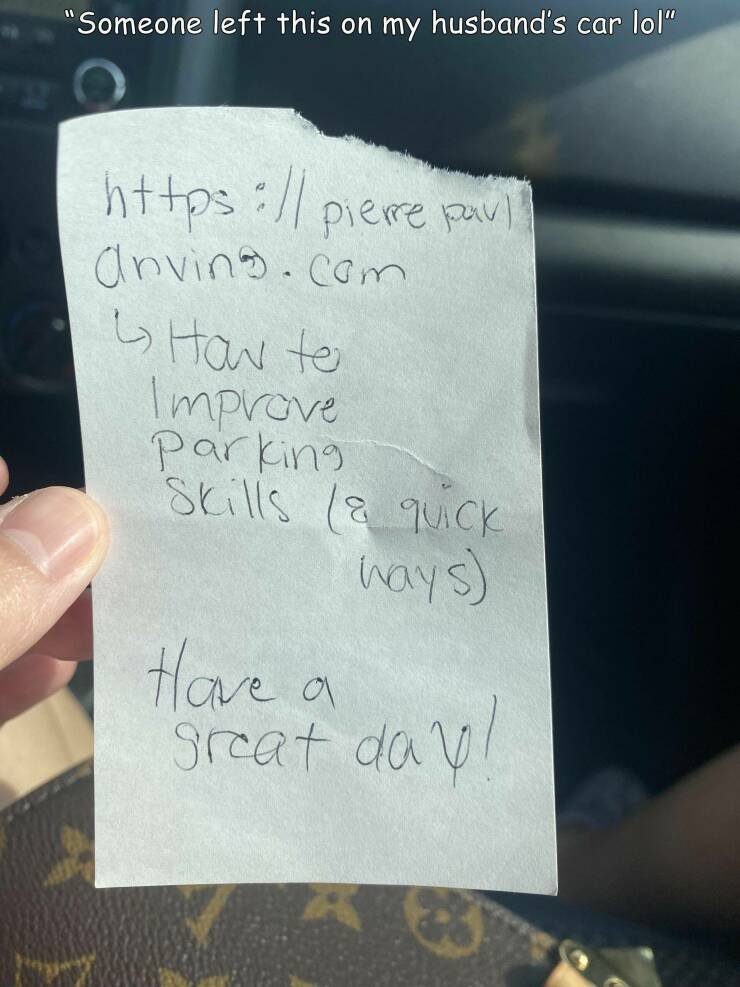 "Someone left this on my husband's car lol"
https://pierre paul
driving.com
↳ How to
Improve
Parking
Skills (8 quick
ways)
Have a
great day!